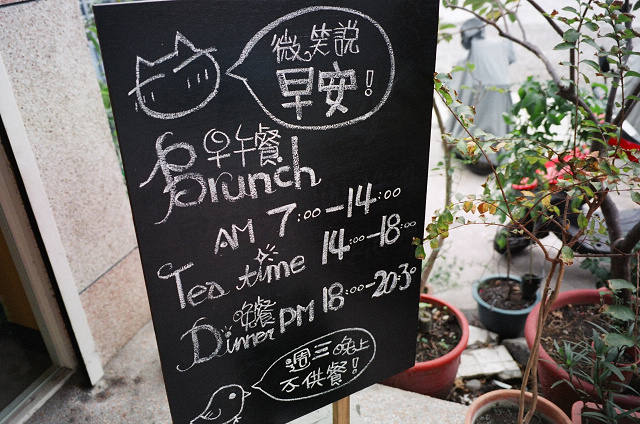 微笑說
早安！
早午餐
Brunch
AM 7:00-14:00
Tea time 14:00-18:00
晚餐
Dinner PM 18:00-20:30
週三晚上
不供餐！